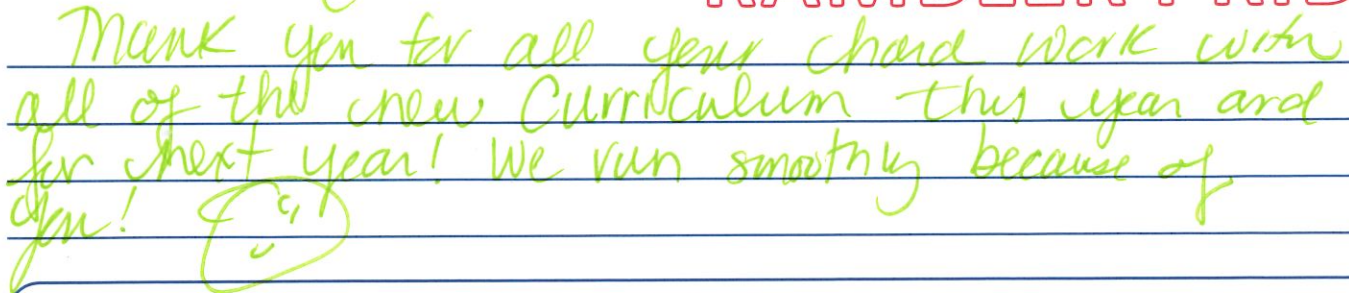 RAMBLER PRID
Thank you for all your hard work with
all of the new Curriculum this year and
for next year! We run smoothly because of
you!